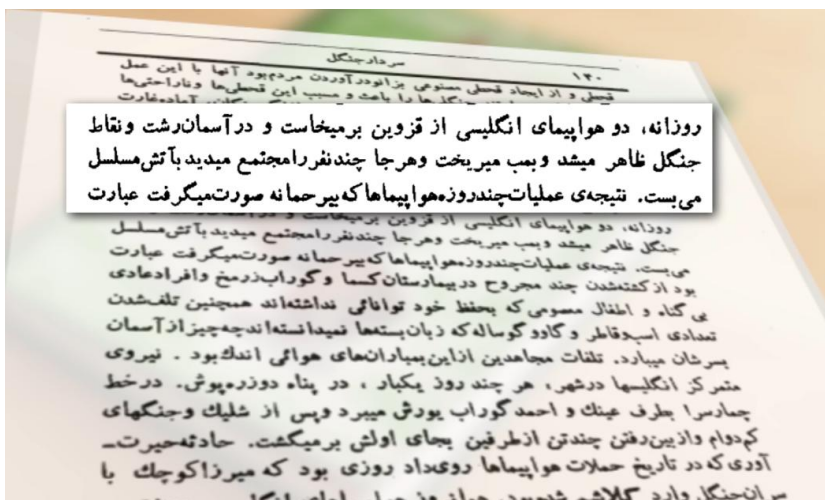 سردارجنگل
۱۴۰
قحطی و از ایجاد قحطی مصنوعی بزانودرآوردن مردم‌بود آنها با این عمل
جنگل‌ها را باعث و مسبب این قحطی‌ها وناراحتی‌ها
روزانه، دو هواپیمای انگلیسی از قزوین برمیخاست و درآسمان‌رشت ونقاط
جنگل ظاهر میشد وبمب میریخت وهرجا چندنفررامجتمع میدید بآتش‌مسلسل
می‌بست. نتیجه‌ی عملیات‌چندروزه‌هواپیماهاکه‌بیرحمانه صورت‌میگرفت عبارت
روزانه، دو هواپیمای انگلیسی از قزوین برمیخاست و
جنگل ظاهر میشد وبمب میریخت وهرجا چندنفررامجتمع میدید بآتش‌مسلسل
می‌بست. نتیجه‌ی عملیات‌چندروزه‌هواپیماهاکه‌بیرحمانه صورت‌میگرفت عبارت
بود ازکشته‌شدن چند مجروح دربیمارستان‌کسما وگوراب‌زرمخ وافرادعادی
بی گناه و اطفال معصومی که بحفظ خود توانائی نداشته‌اند همچنین تلف‌شدن
تعدادی اسب‌وقاطر و گاوو گوساله‌که زبان‌بسته‌ها نمیدانسته‌اندچه‌چیزازآسمان
بسرشان میبارد. تلفات مجاهدین ازاین‌بمباران‌های هوائی اندك‌بود . نیروی
متمرکز انگلیسها درشهر، هر چند روز یکبار ، در پناه دوزره‌پوش. درخط
چمارسرا بطرف عینك و احمدگوراب یورش میبرد وپس از شلیك وجنگهای
کم‌دوام وازبین‌رفتن چندتن ازطرفین بجای اولش برمیگشت. حادثه‌حیرت‌ـ
آوری‌که‌در تاریخ حملات هواپیماها روی‌داد روزی بود که میرزاکوچك با